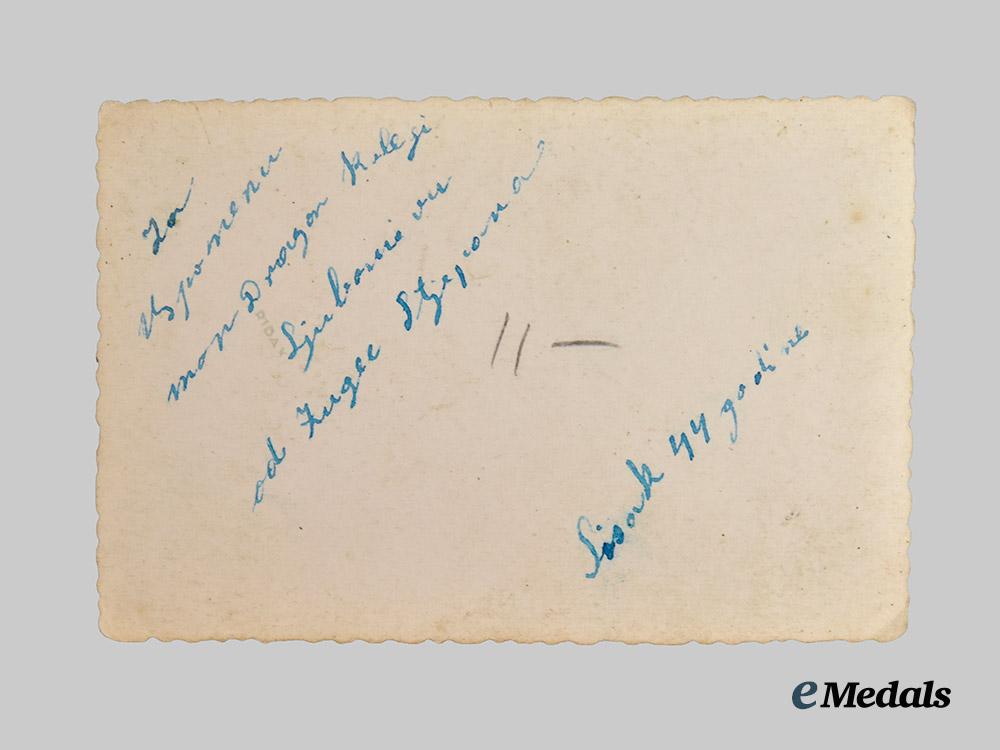 Za
Uspomenu
mom Dragom Kolegi
Ljubomiru
od Zugec Stjepana
11 —
Sisak 44 godine
RIDAX
eMedals